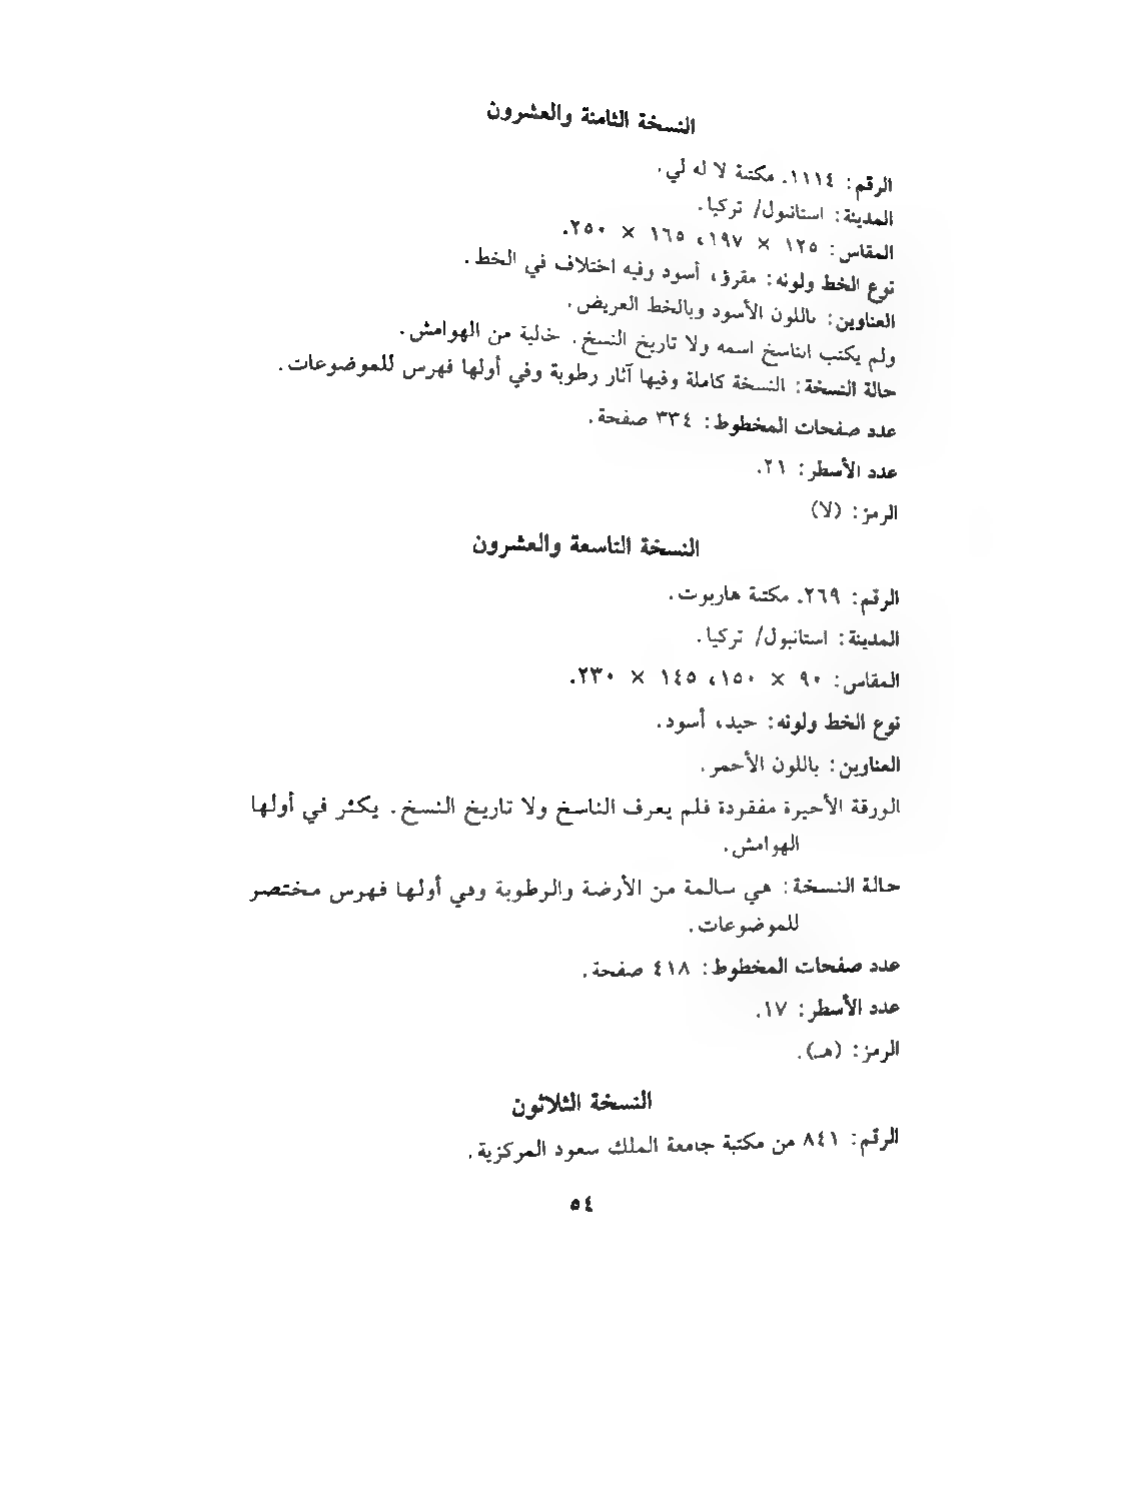 النسخة الثامنة والعشرون
الرقم: ١١١٤. مكتبة لا له لي.
المدينة: استانبول/ تركيا.
المقاس: ١٢٥ × ١٩٧، ١٦٥ × ٢٥٠.
نوع الخط ولونه: مقرؤ، أسود وفيه اختلاف في الخط.
العناوين: باللون الأسود وبالخط العريض.
ولم يكتب الناسخ اسمه ولا تاريخ النسخ. خالية من الهوامش.
حالة النسخة: النسخة كاملة وفيها آثار رطوبة وفي أولها فهرس للموضوعات.
عدد صفحات المخطوط: ٣٣٤ صفحة.
عدد الأسطر: ٢١.
الرمز: (لا)
النسخة التاسعة والعشرون
الرقم: ٢٦٩. مكتبة هاربوت.
المدينة: استانبول/ تركيا.
المقاس: ٩٠ × ١٥٠، ١٤٥ × ٢٣٠.
نوع الخط ولونه: جيد، أسود.
العناوين: باللون الأحمر.
الورقة الأخيرة مفقودة فلم يعرف الناسخ ولا تاريخ النسخ. يكثر في أولها
الهوامش.
حالة النسخة: هي سالمة من الأرضة والرطوبة وفي أولها فهرس مختصر
للموضوعات.
عدد صفحات المخطوط: ٤١٨ صفحة.
عدد الأسطر: ١٧.
الرمز: (هـ).
النسخة الثلاثون
الرقم: ٨٤١ من مكتبة جامعة الملك سعود المركزية.
٥٤